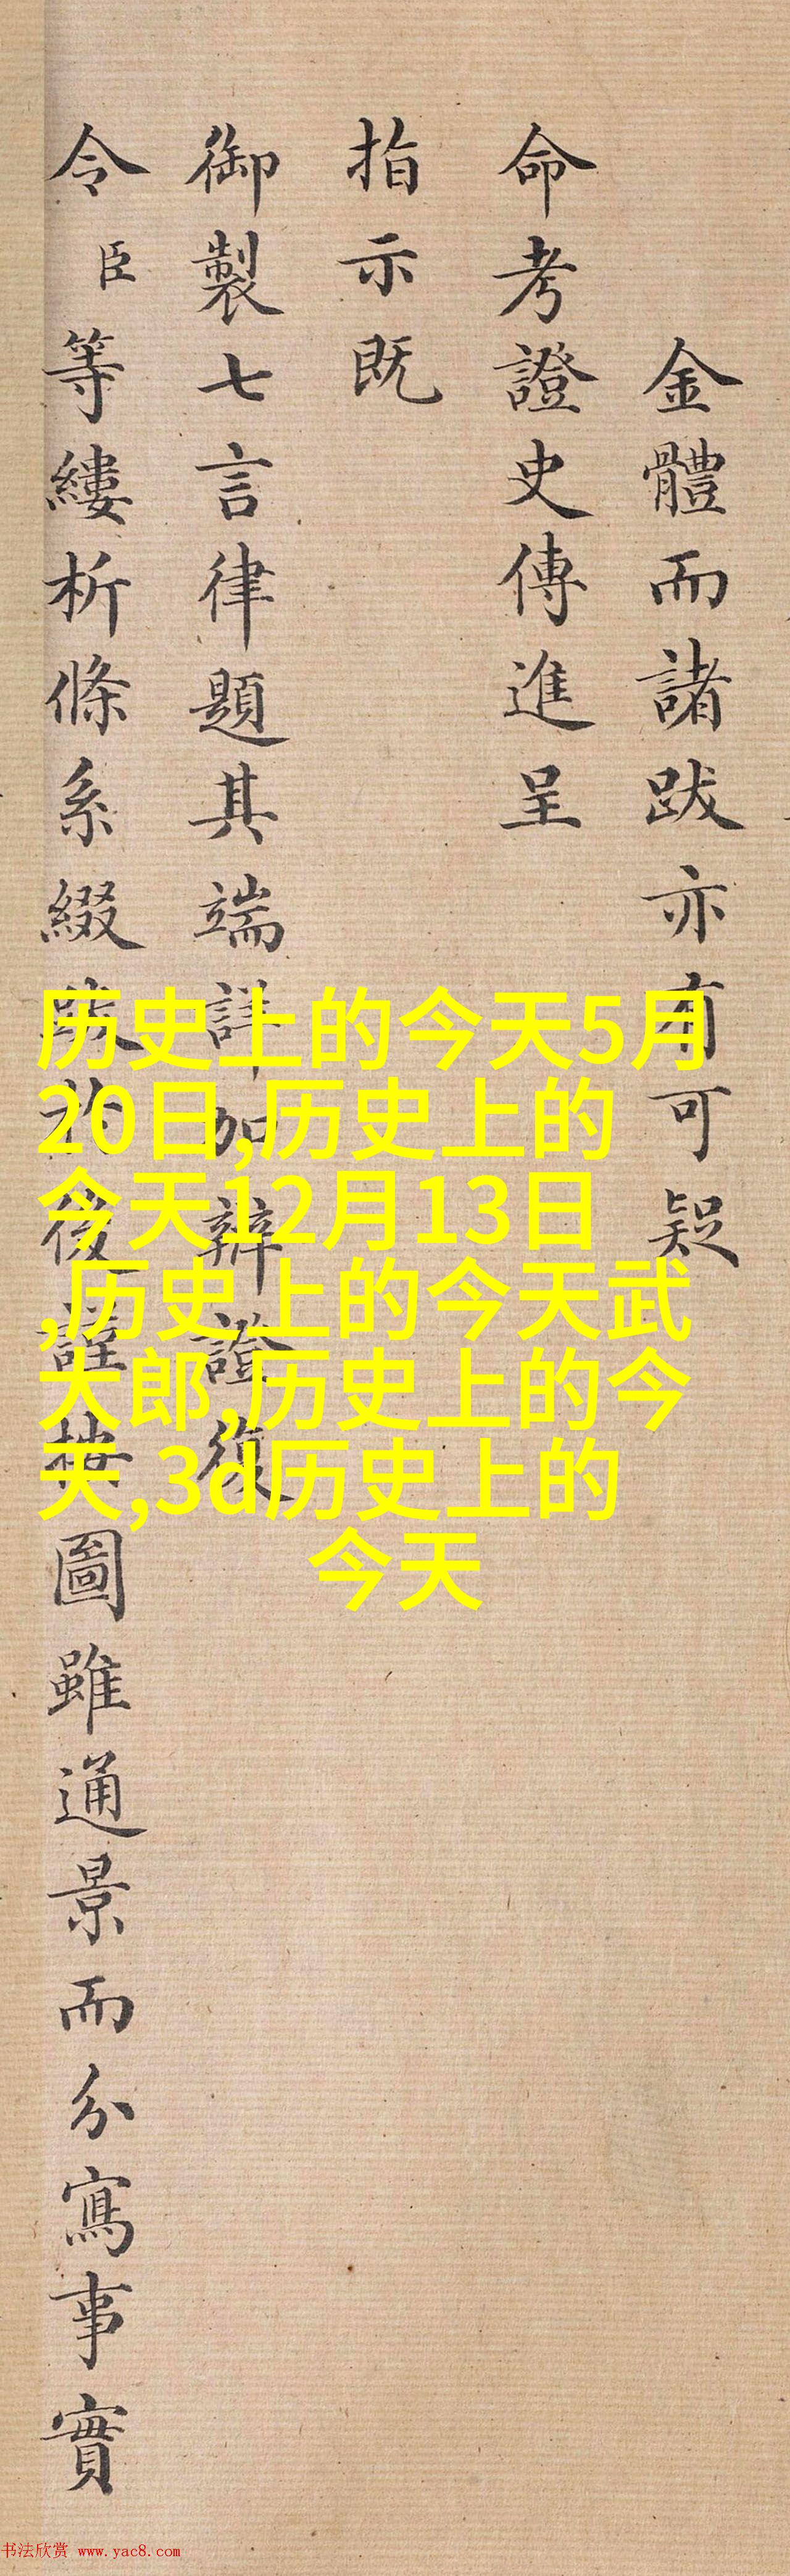 金體而諸跋亦有可疑
命考證史傳進呈
指示既
御製七言律題其端詳加辨證復
令臣等縷析條系綴跋於後謹按圖雖通景而分寫事實
历史上的今天5月
20日,历史上的
今天12月13日
,历史上的今天武
大郎,历史上的今
天,3d历史上的
今天
书法欣赏 www.yac8.com